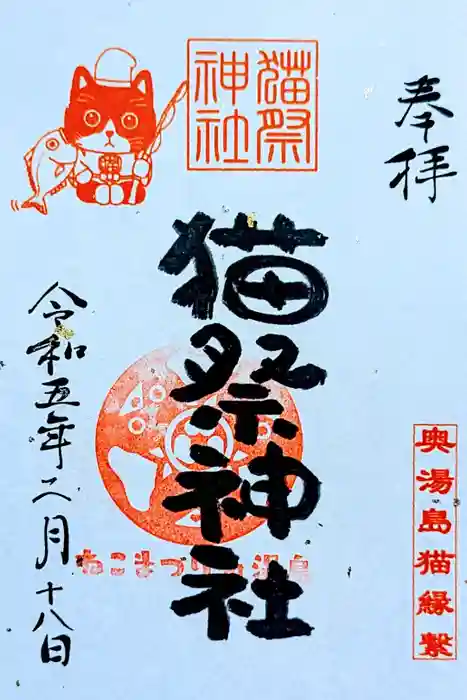 奉拝
奥湯島猫縁繋
猫祭神社
猫祭神社
ねこまつり
湯島
令和五年二月十八日